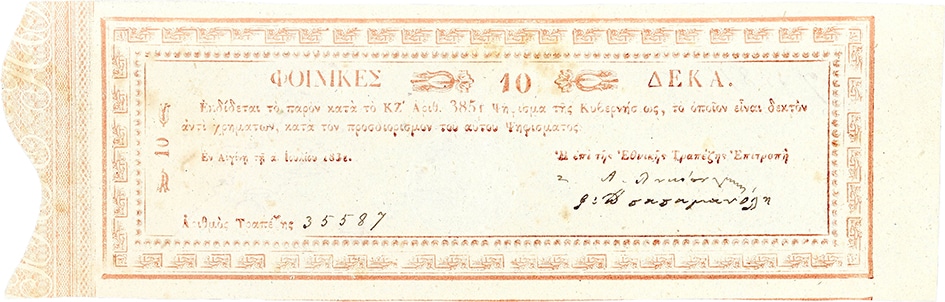 ΦΟΙΝΙΚΕΣ 10 ΔΕΚΑ.
Ἐκδίδεται τὸ παρὸν κατὰ τὸ ΚΖ' Ἀριθ. 385 Ψήφισμα τῆς Κυβερνήσεως, τὸ ὁποῖον εἶναι δεκτὸν
ἀντὶ χρημάτων, κατὰ τὸν προσδιορισμὸν τοῦ αὐτοῦ Ψηφίσματος
10
Ἐν Αἰγίνῃ τῇ Ἰουλίου
Ἡ ἐπὶ τῆς Ἐθνικῆς Τραπέζης Ἐπιτροπὴ
Ἀριθμὸς Τραπέζης 35587